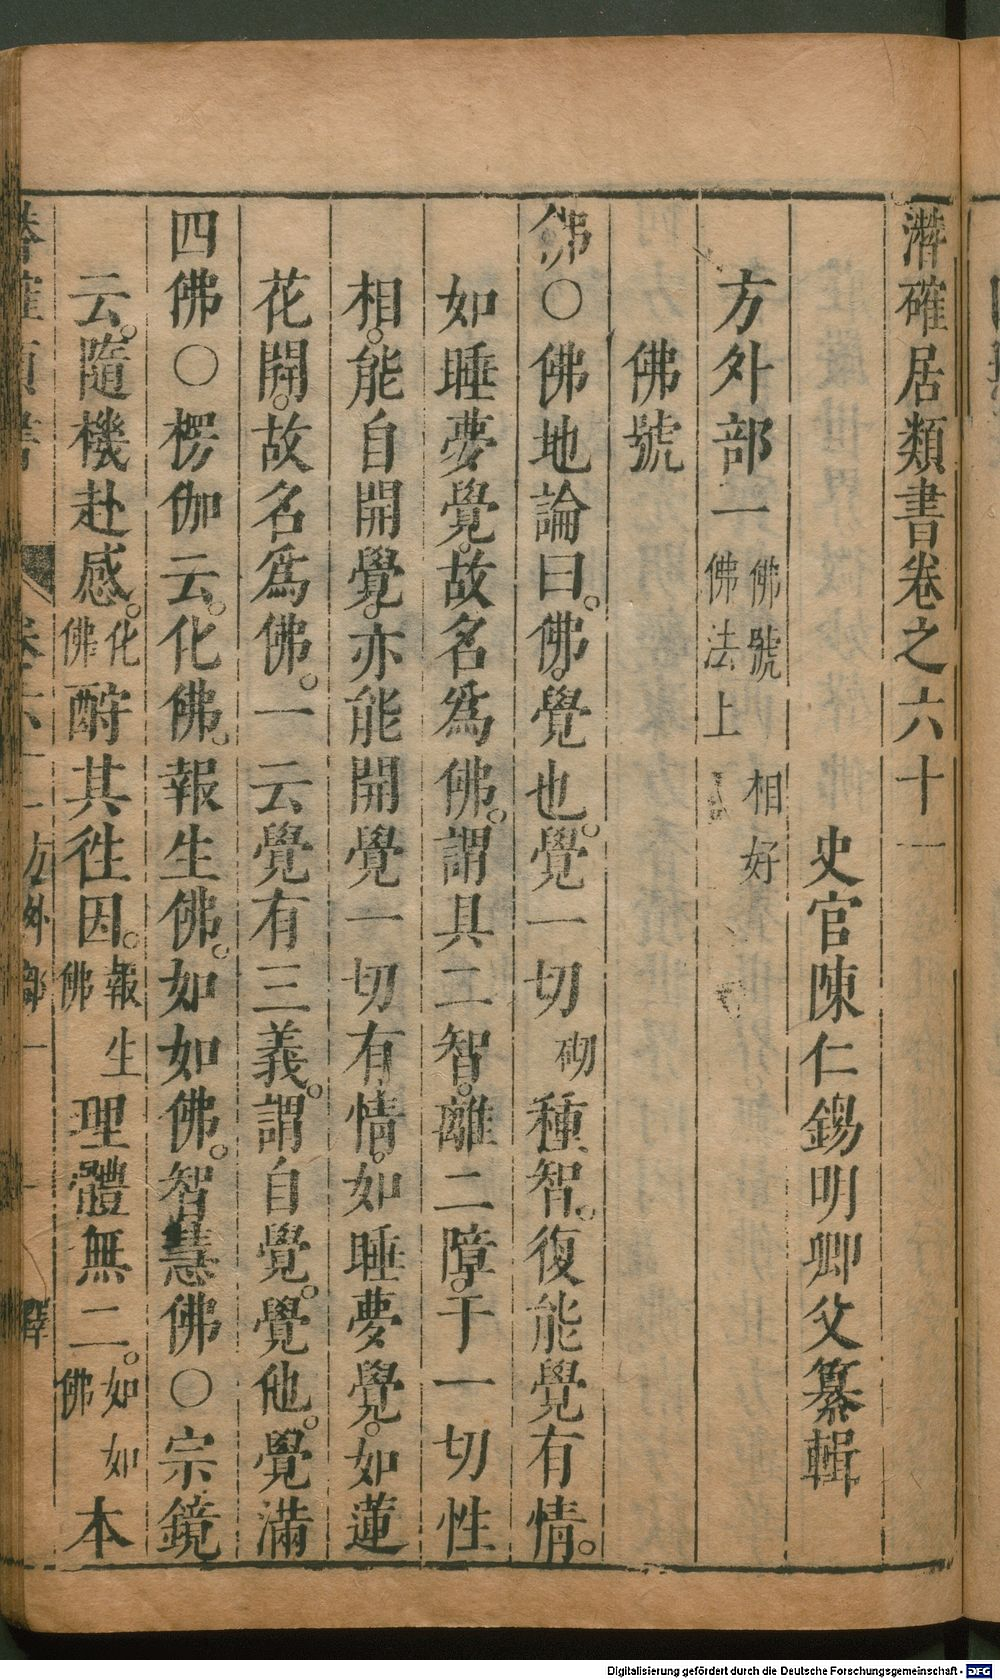 潛確居類書卷之六十一
史官陳仁錫明卿父纂輯
方外部一 佛號 相好 佛法上
佛號
佛○佛地論曰。佛。覺也。覺一切 砌 種智。復能覺有情。
如睡夢覺。故名爲佛。謂具二智。離二障。于一切性
相。能自開覺。亦能開覺一切有情。如睡夢覺。如蓮
花開。故名爲佛。一云覺有三義。謂自覺。覺他。覺滿
四佛○楞伽云。化佛。報生佛。如如佛。智慧佛○宗鏡
云。隨機赴感。化佛酧其徃因。報生佛理體無二。如如佛本
卷六十一方外部一 一 釋
Digitalisierung gefördert durch die Deutsche Forschungsgemeinschaft - DFG